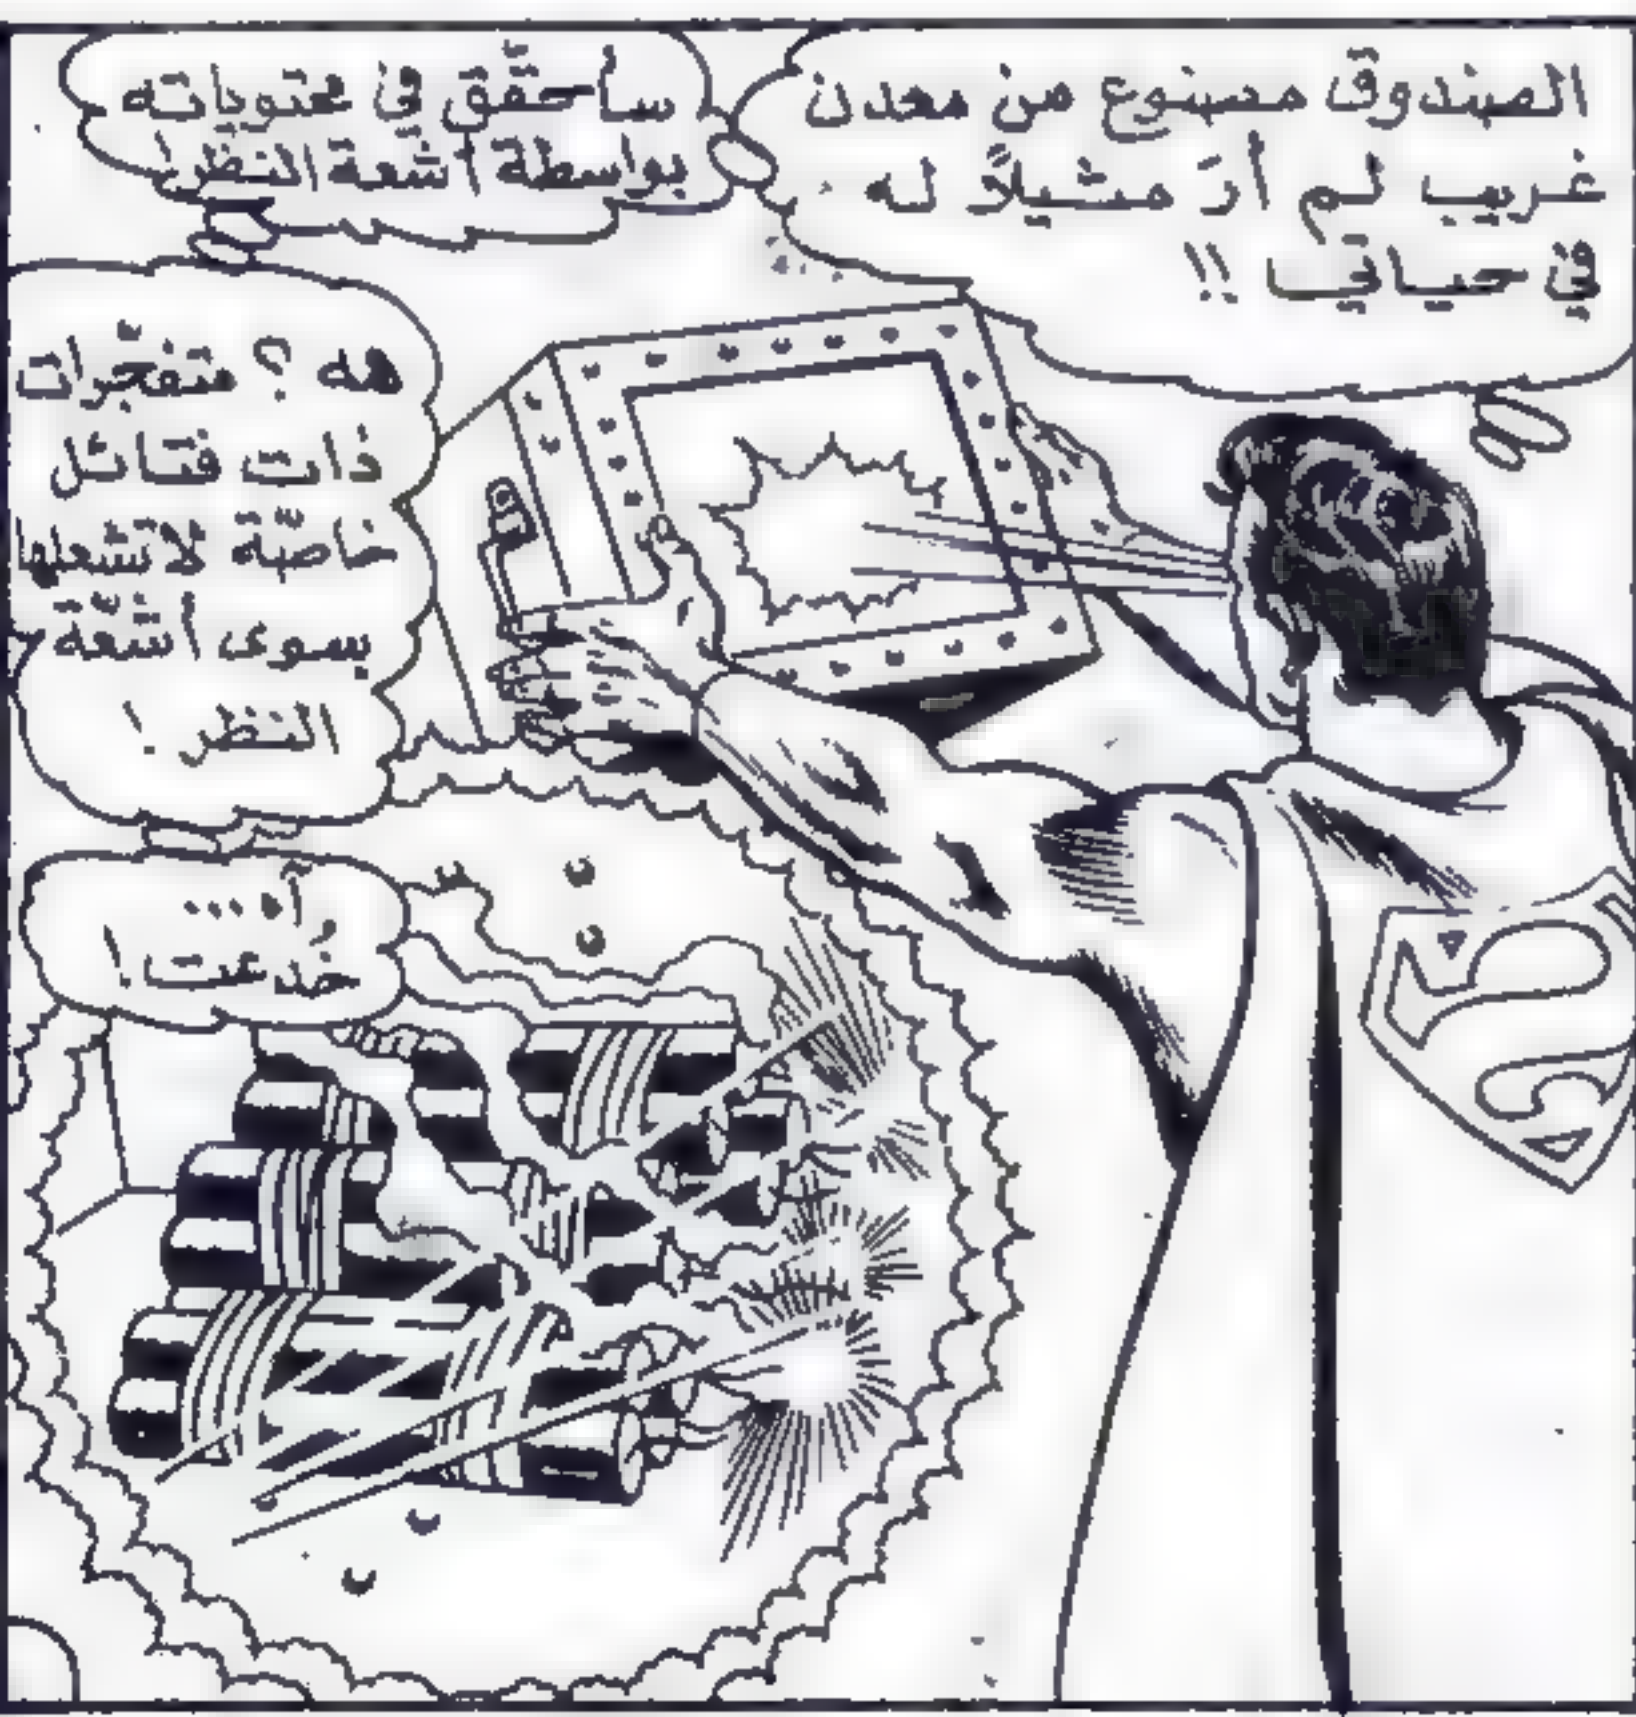 الصندوق مصنوع من معدن
غريب لم أرَ مثيلاً له
في حياتي !!
سأحقّق في محتوياته
بواسطة أشعة النظر!
هه ؟ متفجّرات
ذات فتائل
خاصّة لا تشعلها
سوى أشعّة
النظر !
آه ...
خُدعت !
S